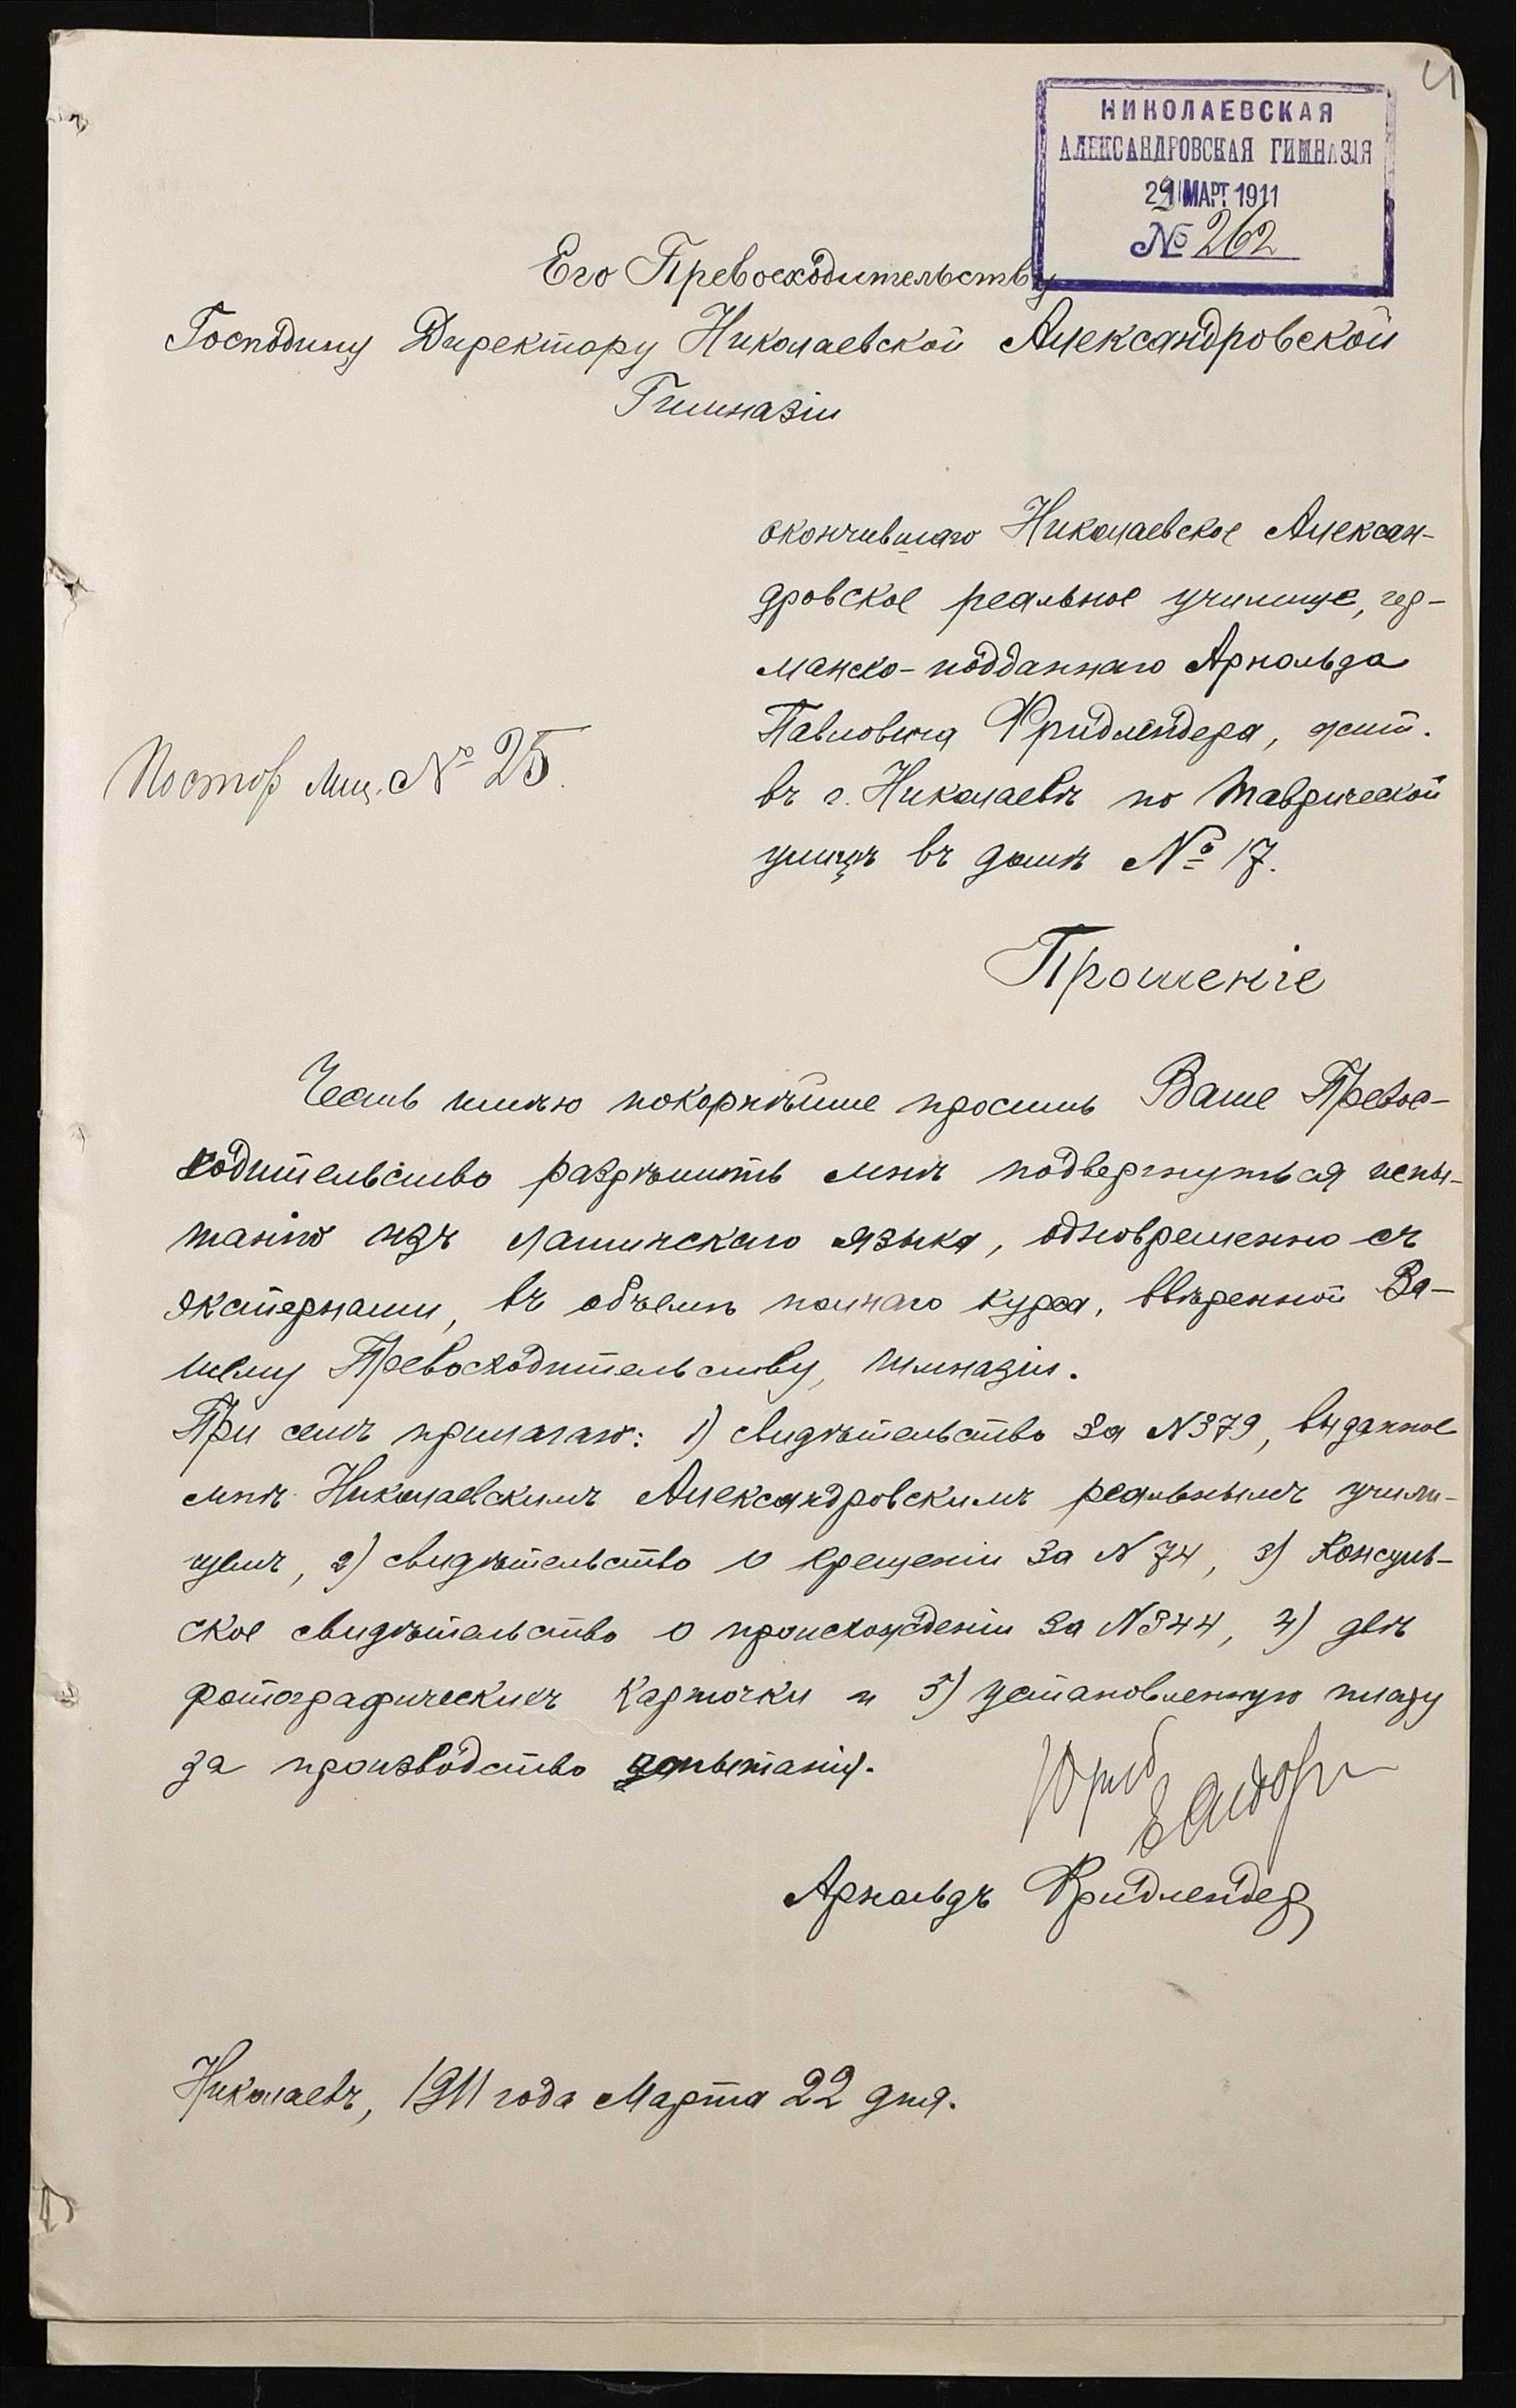 4
НИКОЛАЕВСКАЯ
АЛЕКСАНДРОВСКАЯ ГИМНАЗІЯ
29 МАРТ 1911
№ 262
Его Превосходительству
Господину Директору Николаевской Александровской
Гимназіи
окончившаго Николаевское Алексан-
дровское реальное училище, гер-
манско-подданнаго Арнольда
Павловича Фридлендера, жит.
въ г. Николаевѣ по Таврической
улицѣ въ домѣ № 17.
Постор лиц. № 25.
Прошеніе
Честь имѣю покорнѣйше просить Ваше Превос-
ходительство разрѣшить мнѣ подвергнуться испы-
танію изъ латинскаго языка, одновременно съ
экстернами, въ объемѣ полнаго курса, ввѣренной Ва-
шему Превосходительству, гимназіи.
При семъ прилагаю: 1) свидѣтельство за N 379, выданное
мнѣ Николаевскимъ Александровскимъ реальнымъ учили-
щемъ, 2) свидѣтельство о крещеніи за N 74, 3) Консуль-
ское свидѣтельство о происхожденіи за N 344, 4) двѣ
фотографическихъ карточки и 5) установленную плату
за производство испытанія.
Арнольдъ Фридлендер
Николаевъ, 1911 года Марта 22 дня.